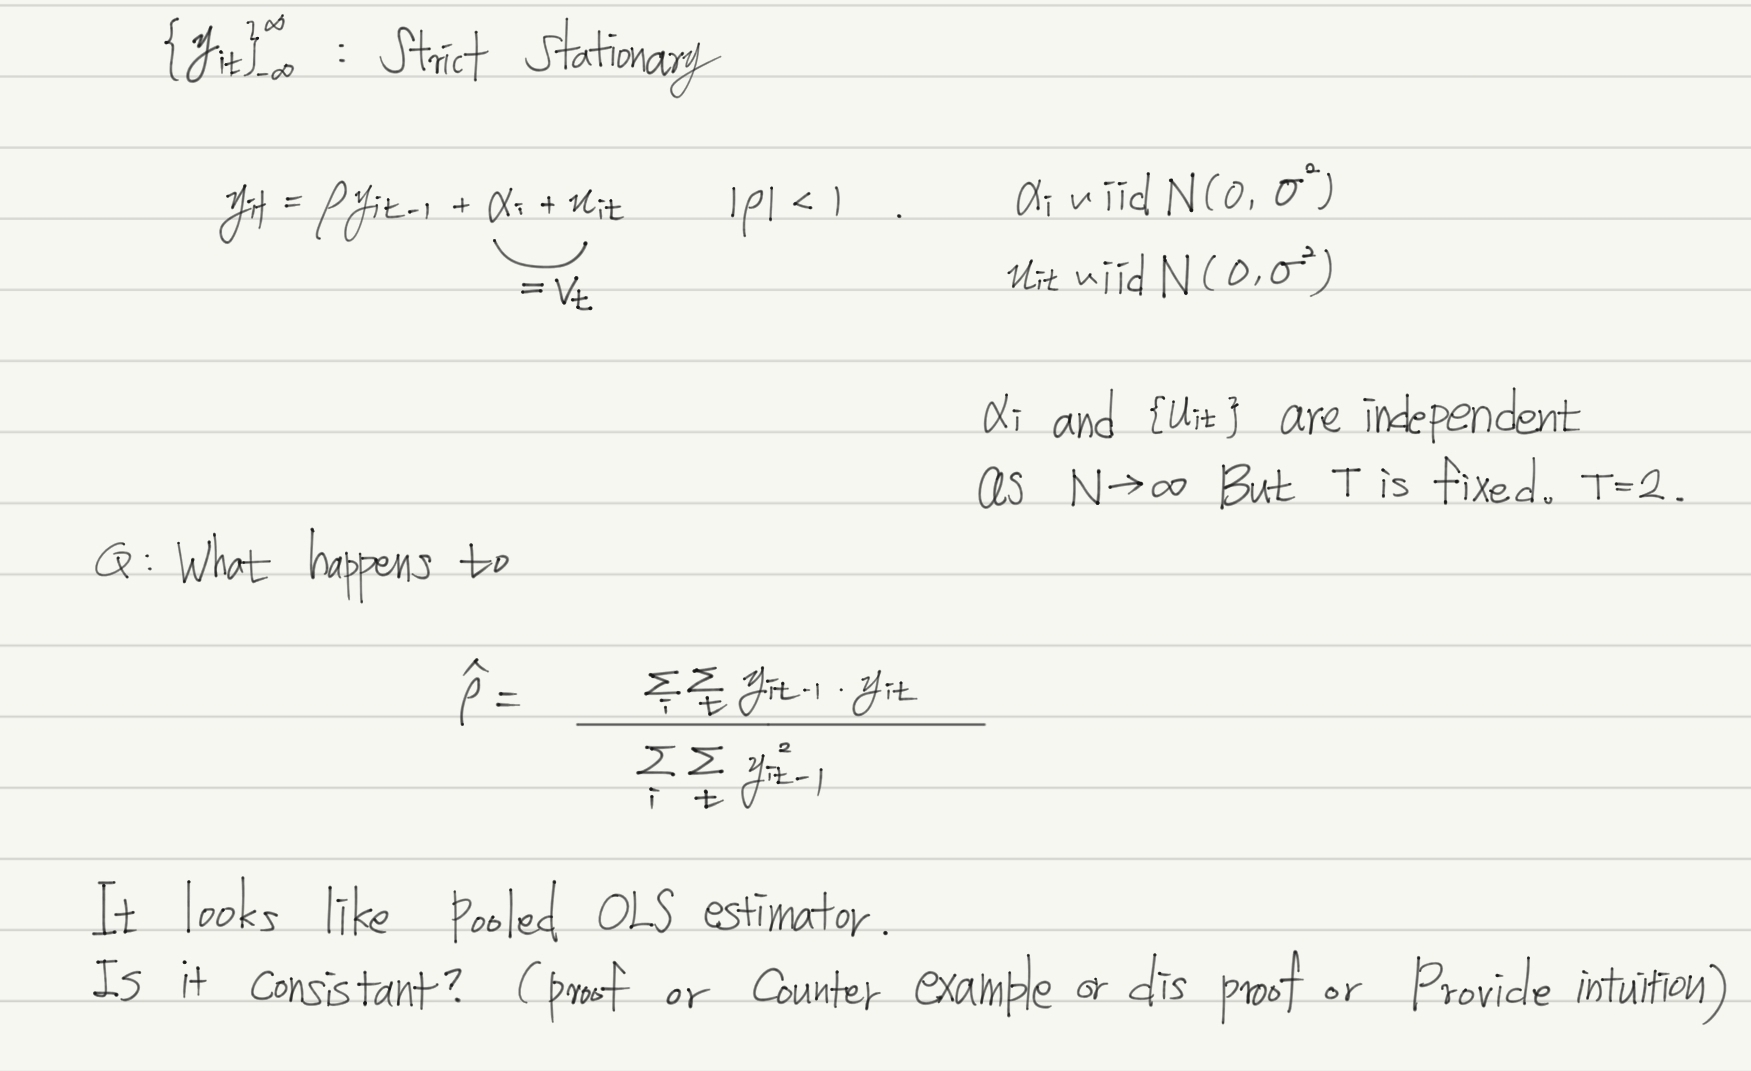 {y_it}_-∞^∞ : Strict Stationary
y_it = ρ y_it-1 + α_i + u_it |ρ| < 1 . α_i ~ iid N(0, σ²)
= V_t u_it ~ iid N(0, σ²)
α_i and {u_it} are independent
as N→∞ But T is fixed. T=2.
Q: What happens to
ρ̂ = Σ_i Σ_t y_it-1 · y_it
Σ_i Σ_t y²_it-1
It looks like pooled OLS estimator.
Is it consistant? (proof or Counter example or dis proof or Provide intuition)